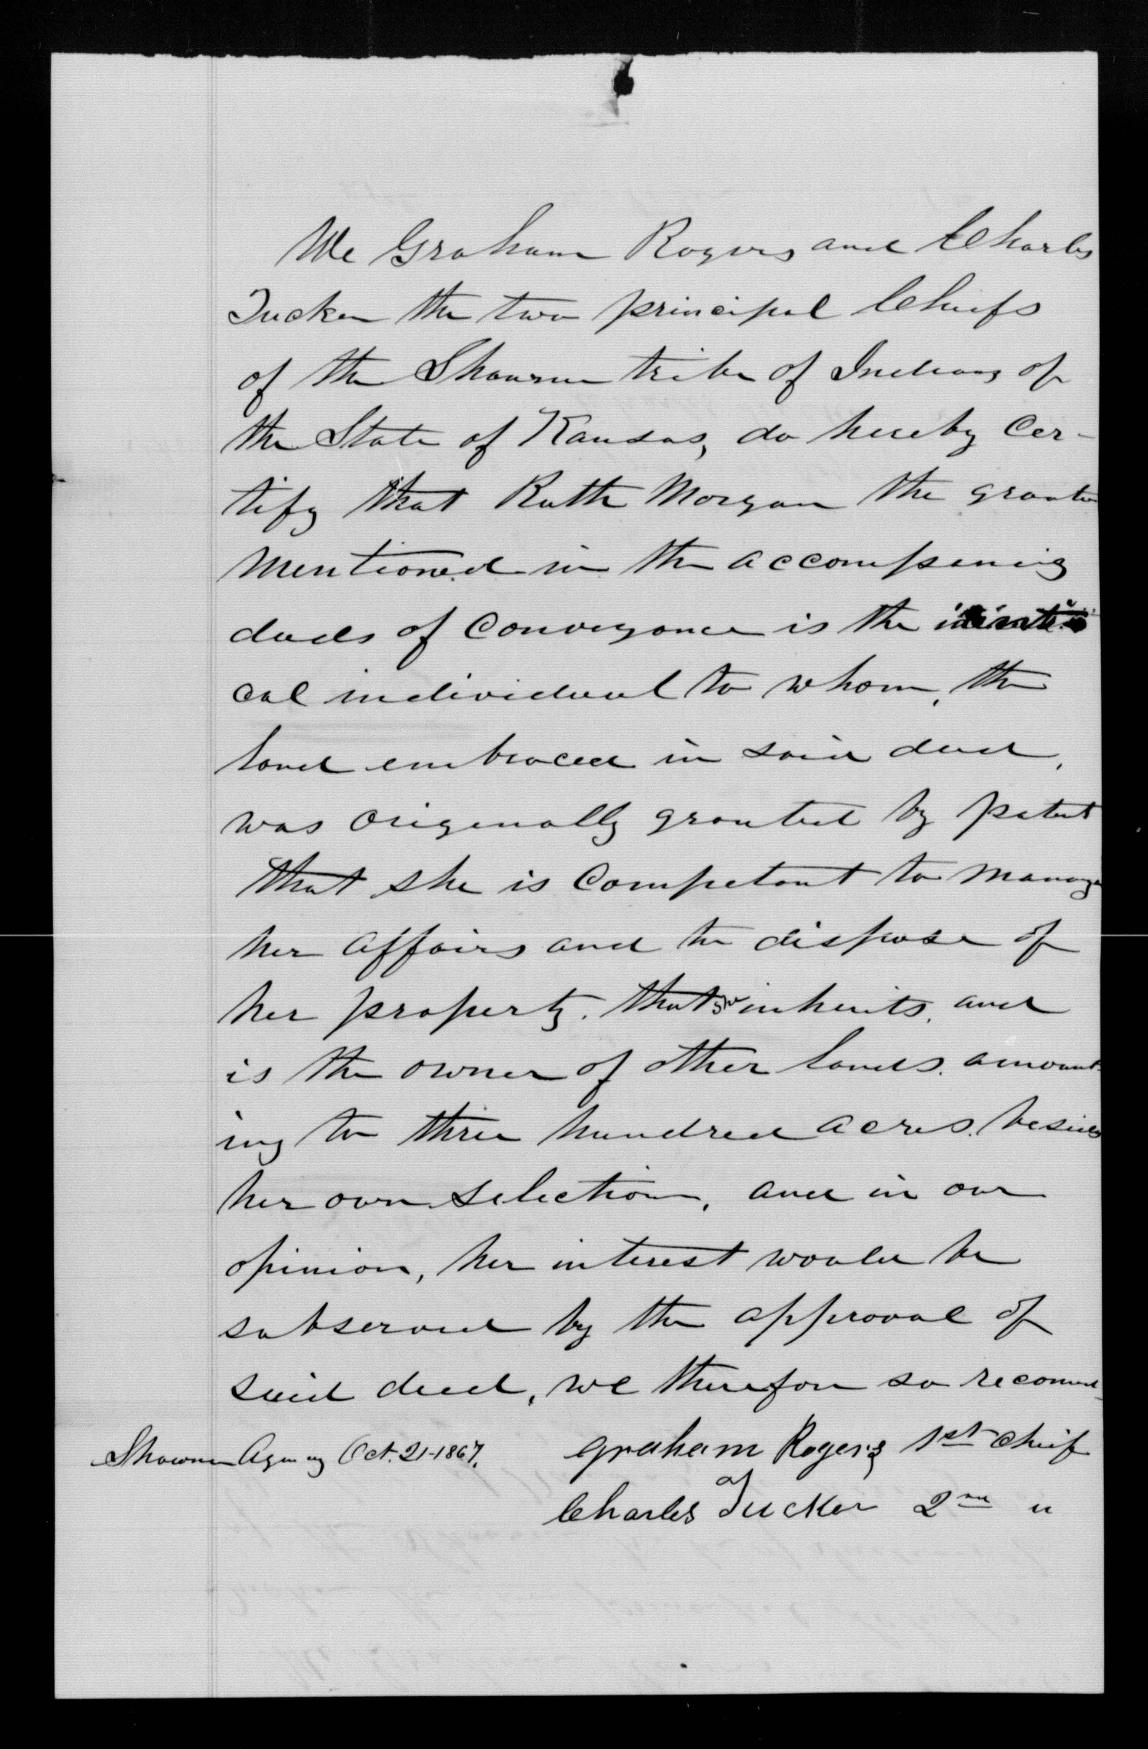 We Graham Rogers and Charles
Tucker the two principal Chiefs
of the Shawnee tribe of Indians of
the State of Kansas, do hereby Cer-
tify that Ruth Morgan the grantor
mentioned in the accompaning
deeds of Conveyance is the identi
cal individual to whom, the
land embraced in said deed,
was originally granted by patent
that she is Competant to manage
her affairs and to dispose of
her property. that she inherits, and
is the owner of other lands. amount
ing to three hundred acres. besides
her own selection, and in our
opinion, her interest would be
subserved by the approval of
said deed, we therefore so recomend
Shawnee Agency Oct. 21-1867.
Graham Rogers 1st chief
Charles Tucker 2nd "